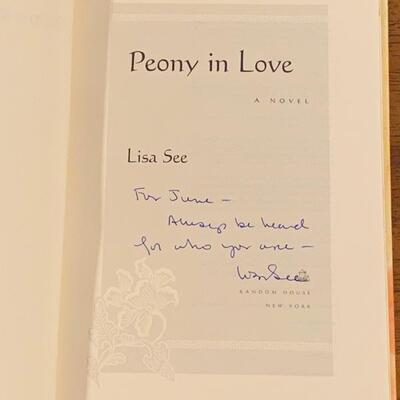 Peony in Love
A NOVEL
Lisa See
For June –
Always be heard
for who you are –
Lisa See
RANDOM HOUSE
NEW YORK